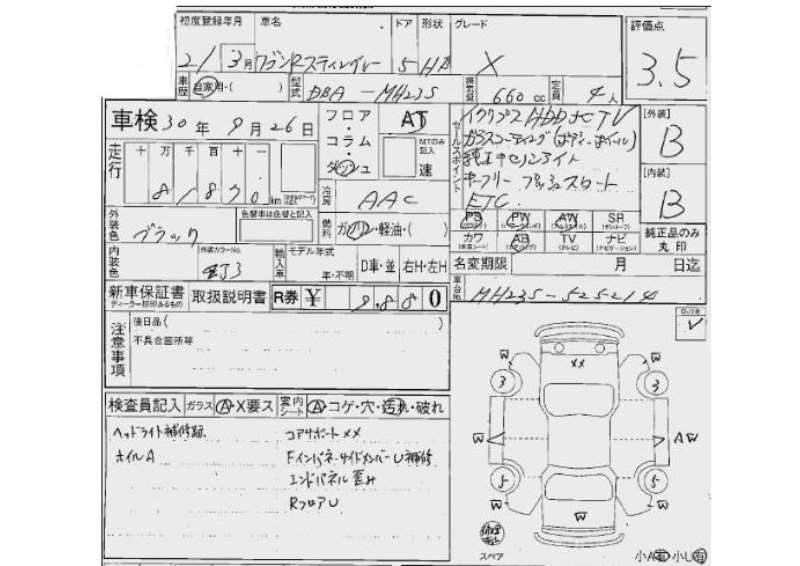 初度登録年月 車名 ドア 形状 グレード 評価点
21 3月 ワゴンRスティングレー 5 HB X 3.5
車歴 自家用・( ) 型式 DBA-MH23S 排気量 660cc 定員 4人
車検 30年 9月 26日 フロア・コラム・ダッシュ AT MTのみ記入 速
セールスポイント HDD TV
純正キセノンライト
キーフリー プッシュスタート
ETC
[外装] B
[内装] B
走行 十 万 千 百 十 一
8 1 8 7 0 km
冷房 AAC
外装色 ブラック 色替車は色替と記入
燃料 ガソリン・軽油・( )
PS PW AW SR
カワ AB TV ナビ
純正品のみ丸印
内装色 外装カラーNo. ZJ3 輸入車 モデル年式 年・不明 D車・並 右H・左H
名変期限 月 日迄
新車保証書 取扱説明書 R券 ¥ 9,880
ディーラー捺印あるもの
車台No. MH23S-525214
注意事項 後日品( )
不具合箇所等
検査員記入 ガラス A・X要ス 室内シート A・コゲ・穴・汚れ・破れ
ヘッドライト補修跡 コアサポートXX
ホイルA Fインパネ・サイドメンバーU補修
エンドパネル歪み
RフロアU
W XX W
3 3
W AW
5 5
W W W
スペア
小A有 小U有